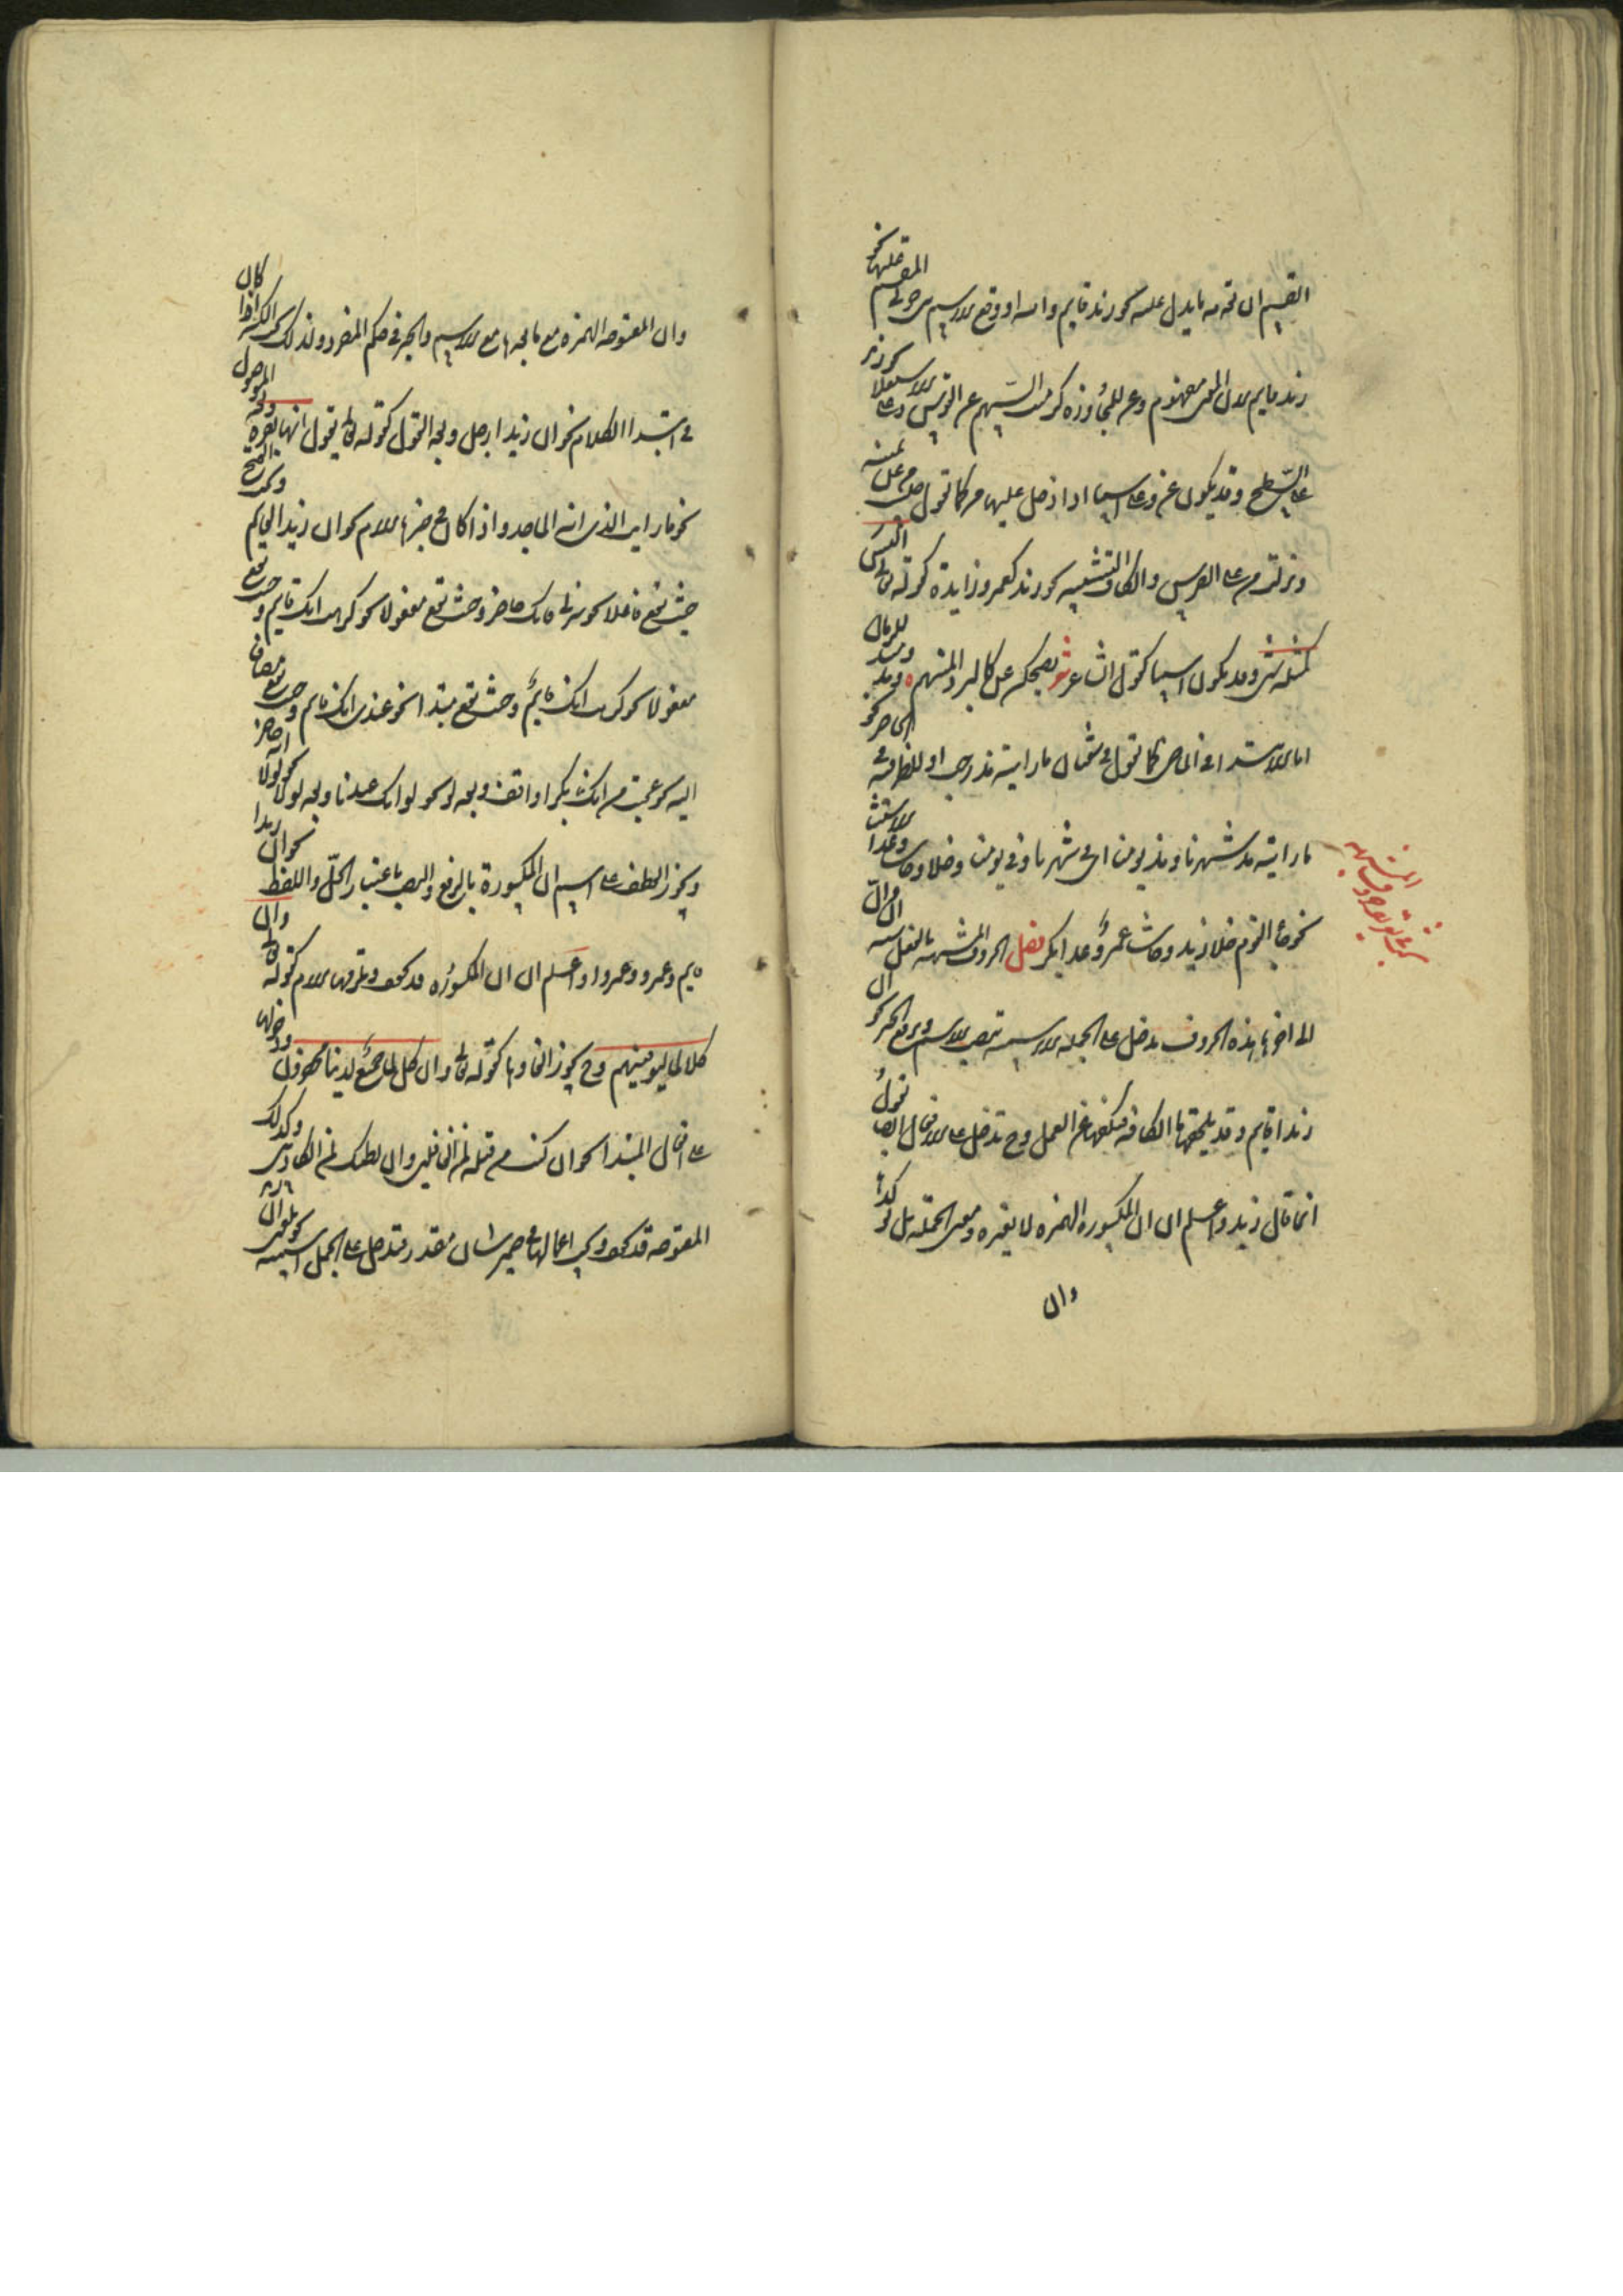 القسم ان تقدمه ما يدل عليه نحو زيد قايم والله او وقع القسم بين جزئي الاسمية نحو
زيد والله قايم لان المعنى مفهوم وعن للمجاوزة كرميت السهم عن القوس وعلى للاستعلاء نحو زيد
على السطح وقد يكون عن وعلى اسما اذا دخل عليهما من كما تقول جلس من عن يمينه
ونزلت من على الفرس والكاف للتشبيه نحو زيد كعمرو وزايدة كقوله تعالى ليس
كمثله شئ وقد يكون اسما كقول الشاعر شعر يضحكن عن كالبرد المنهم ومذ ومنذ للزمان
اما للابتداء في الماضي كما تقول في شعبان ما رايته مذ رجب او للظرفية في الحاضر نحو
ما رايته مذ شهرنا ومنذ يومنا اي في شهرنا وفي يومنا وخلا وحاشا وعدا للاستثناء
نحو جاء القوم خلا زيد وحاشا عمرو وعدا بكر فصل الحروف المشبهة بالفعل ستة ان وان
الى اخرها هذه الحروف تدخل على الجملة الاسمية تنصب الاسم وترفع الخبر نحو ان
زيدا قايم وقد يلحقها ما الكافة فتكفها عن العمل وح تدخل على الافعال ايضا تقول
انما قال زيد واعلم ان ان المكسورة الهمزة لا يغير معنى الجملة بل تؤكدها
وان
المشبهة
وان المفتوحة الهمزة مع ما بعدها مع الاسم والخبر في حكم المفرد ولذلك يجب الكسر اذا كان
في ابتداء الكلام نحو ان زيدا رجل وبعد القول كقوله تعالى يقول انها بقرة وبعد الموصول
نحو ما رايت الذي انه الماجد واذا كان مع خبرها لام نحو ان زيدا لقايم ويجب الفتح
حيث تقع فاعلا نحو سرني انك حاضر وحيث تقع مفعولا نحو كرهت انك قايم وحيث تقع
مفعولا نحو كرهت انك قايم وحيث تقع مبتدا نحو عندي انك قايم وحيث تقع مضاف
اليه نحو عجبت من انك بكرا واقف وبعد لو نحو لو انك عندنا وبعد لولا نحو لولا انه حاضر
ويجوز العطف على اسم ان المكسورة بالرفع والنصب باعتبار المحل واللفظ نحو ان زيدا
قايم وعمرو وعمروا واعلم ان ان المكسورة قد تخفف ويلزمها اللام كقوله تعالى وان
كلا لما ليوفينهم وح يجوز الغاؤها كقوله تعالى وان كل لما جميع لدينا محضرون ودخولها
على افعال المبتدا نحو وان كنت من قبله لمن الغافلين وان نظنك لمن الكاذبين وكذلك ان
المفتوحة قد تخفف ويجب اعمالها في ضمير شان مقدر فتدخل على الجمل اسمية